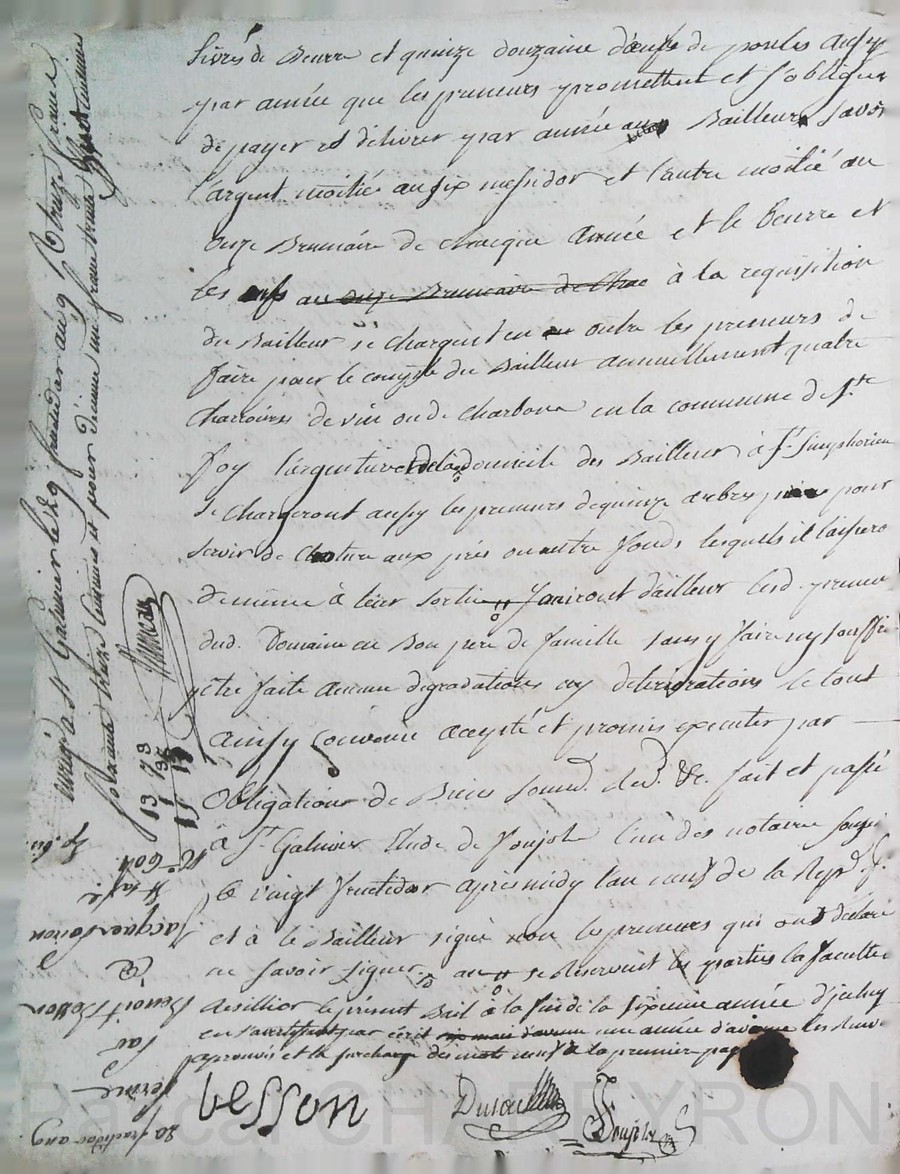 livres de Beurre et quinze douzaine d'œufs de poules aussy
par année que les preneurs promettent et s'obligent
de payer et délivrer par année au Bailleur, savoir
l'argent moitié au six messidor et l'autre moitié au
onze Brumaire de chaque année et le beurre et
les œufs au onze Brumaire de chac à la requisition
du Bailleur se chargent en outre les preneurs de
faire pour le compte du Bailleur annuellement quatre
charroires de vin ou de charbon en la commune de Ste
foy l'argentiere domicile des Bailleur à St Simphorien
se chargeront aussy les preneurs de quinze arbres pour
servir de cloture aux prés ou autre fonds lesquels il laissero
de meme à leur sortie Jouiront d'ailleur lesd. preneur
dud. Domaine en Bon pere de famille sans y faire ny souffri
être faite aucune degradations ny deteriorations le tout
ainsy convenu accepté et promis executer par
obligation de Biens soumd. &c. fait et passé
à St Galmier Etude de Poujol l'un des notaire soussi
le vingt fructidor après midy l'an neuf de la Rep. f.
et à le Bailleur signé non les preneurs qui ont déclaré
ne savoir signer se réservent les parties la faculté
de résillier le présent Bail à la fin de la sixieme année d'icelluy
en s'avertissant par écrit six mois d'avance une année d'avance
aprouvés et la surcharge des mots neuf à la premier page
besson
Poujol
enregé à St Galmier le 29 fructidor an 9
soixante treize centimes et pour Décime un franc trente
13 73
1 38
15 11
Jacques
Benoit Besson
par
20 fructidor an 9
Pascal CHAREYRON